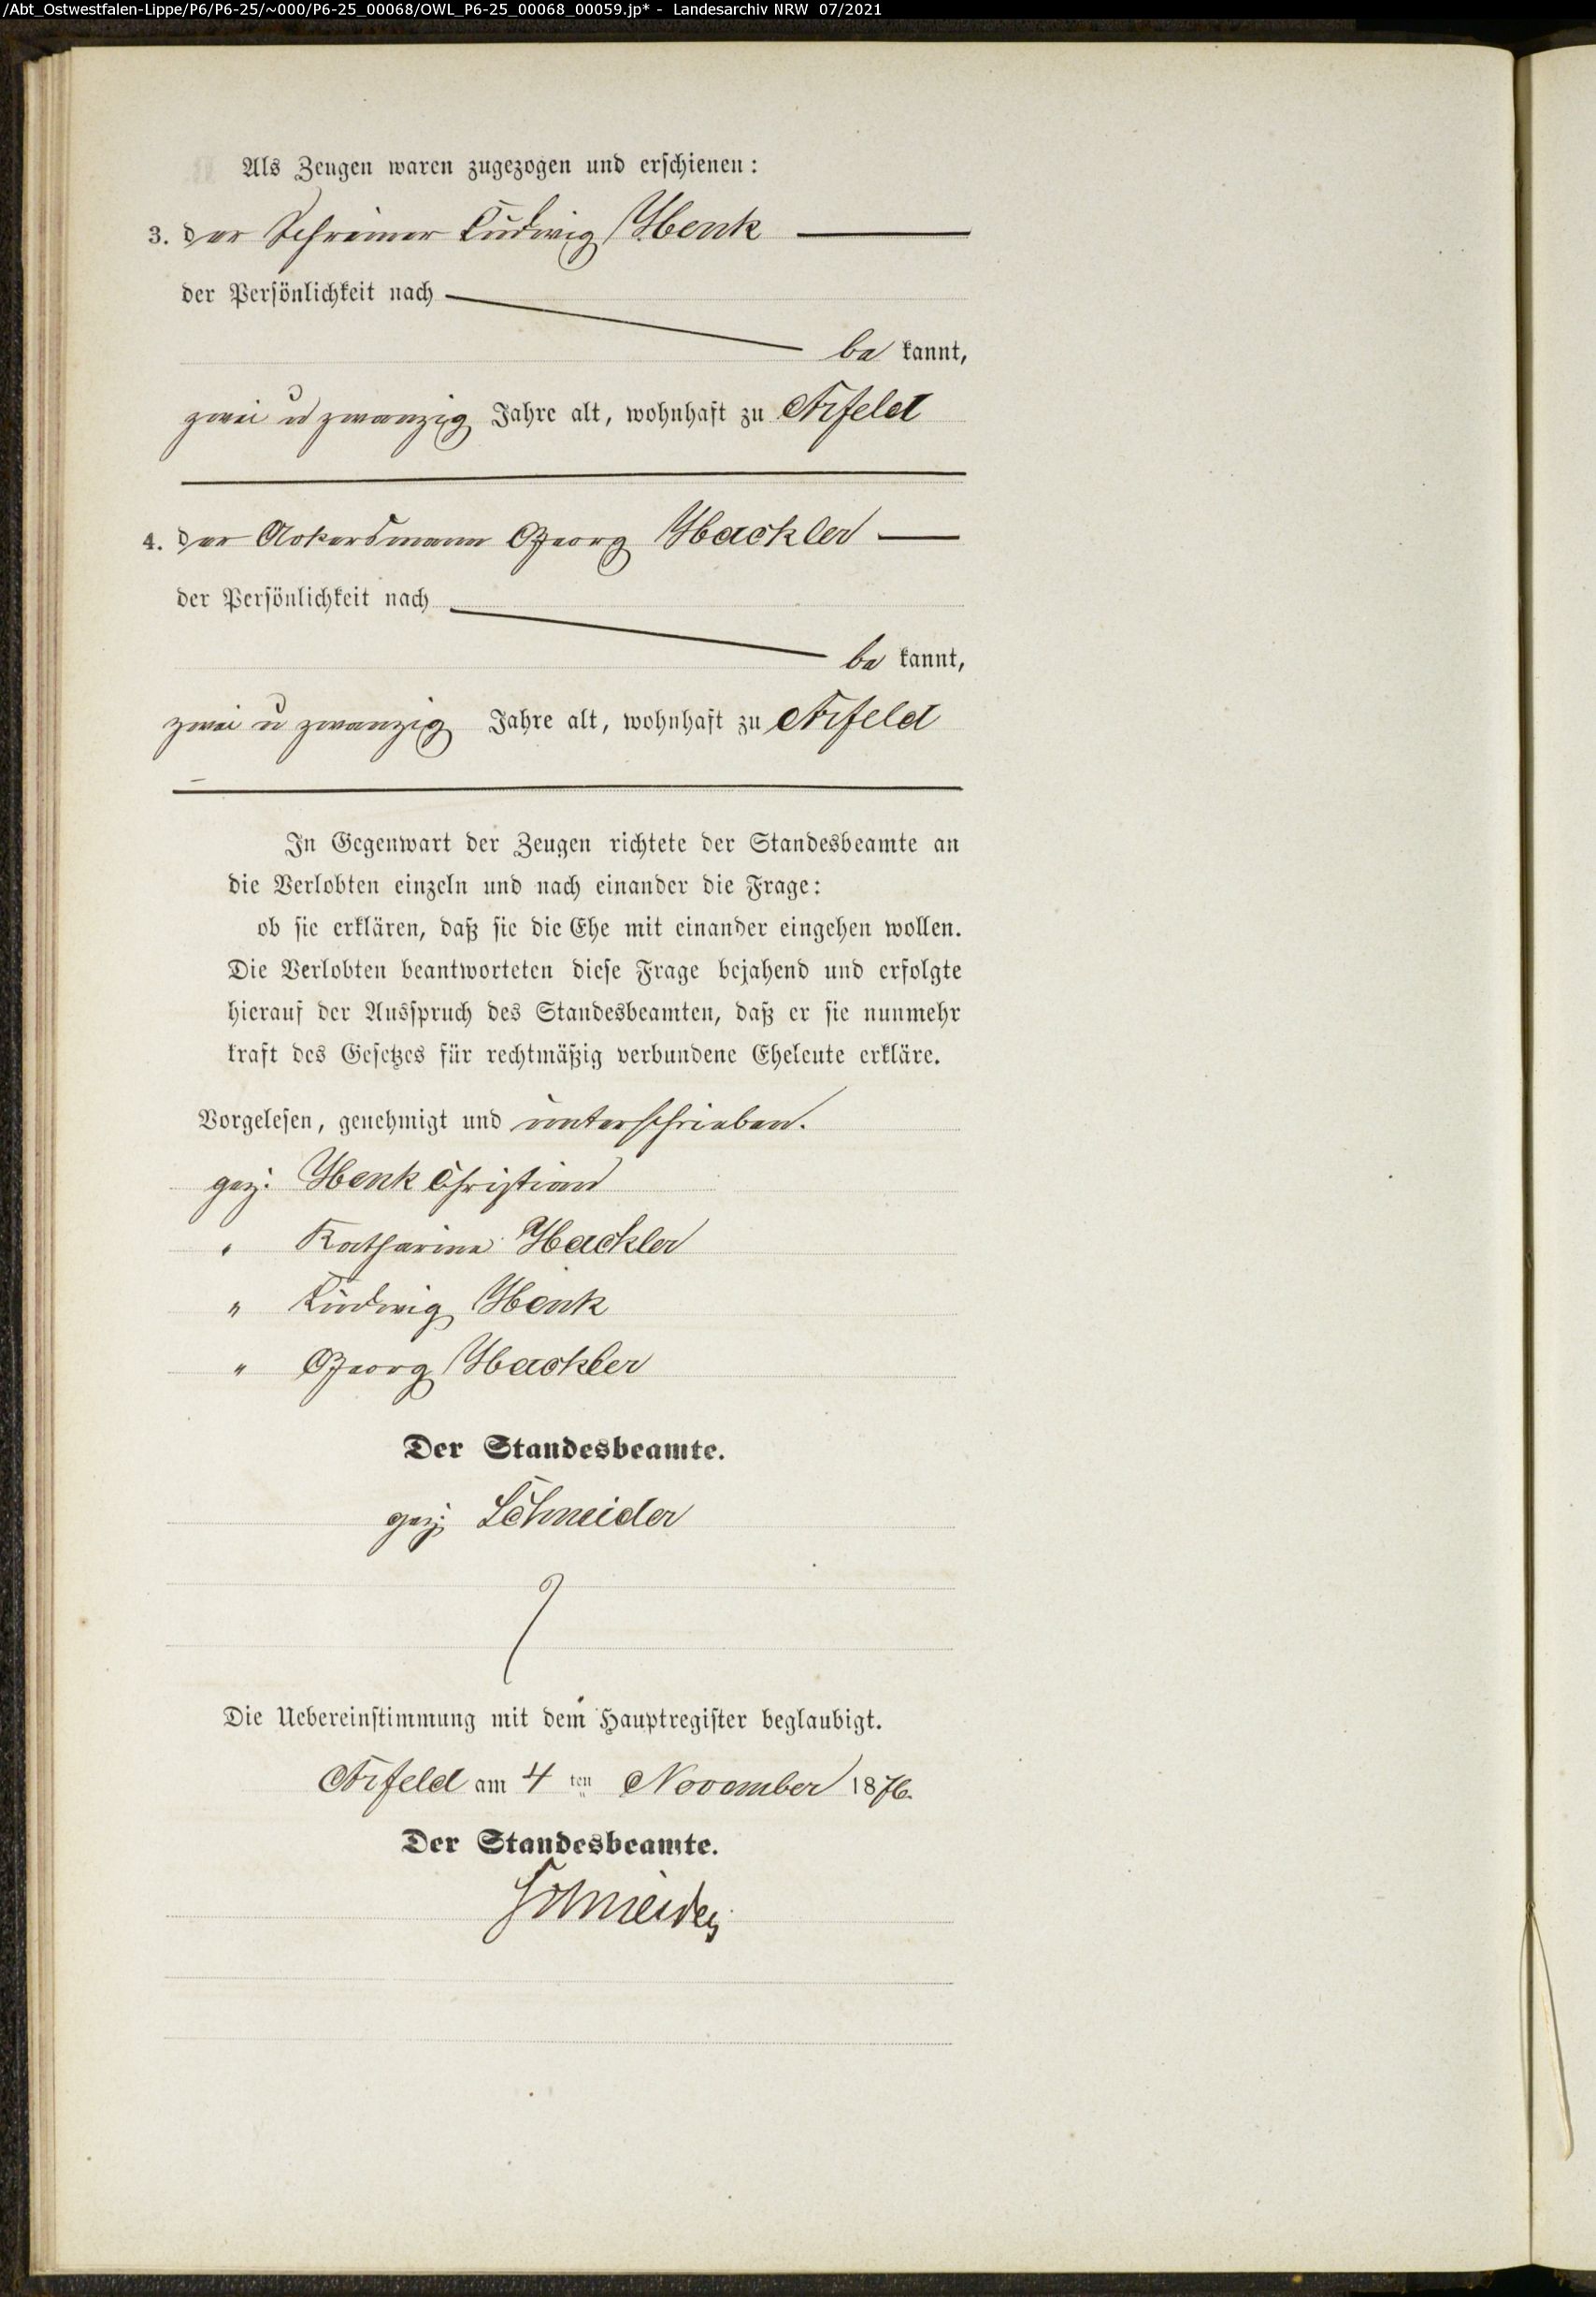 /Abt_Ostwestfalen-Lippe/P6/P6-25/~000/P6-25_00068/OWL_P6-25_00068_00059.jp* - Landesarchiv NRW 07/2021
Als Zeugen waren zugezogen und erschienen:
3. der Schreiner Ludwig Henk
der Persönlichkeit nach
be kannt,
zwei u zwanzig Jahre alt, wohnhaft zu Arfeld
4. der Ackersmann Georg Hackler
der Persönlichkeit nach
be kannt,
zwei u zwanzig Jahre alt, wohnhaft zu Arfeld
In Gegenwart der Zeugen richtete der Standesbeamte an
die Verlobten einzeln und nach einander die Frage:
ob sie erklären, daß sie die Ehe mit einander eingehen wollen.
Die Verlobten beantworteten diese Frage bejahend und erfolgte
hierauf der Ausspruch des Standesbeamten, daß er sie nunmehr
kraft des Gesetzes für rechtmäßig verbundene Eheleute erkläre.
Vorgelesen, genehmigt und unterschrieben.
gez: Henk Christian
" Katharine Hackler
" Ludwig Henk
" Georg Hackler
Der Standesbeamte.
gez: Schneider
Die Uebereinstimmung mit dem Hauptregister beglaubigt.
Arfeld am 4 ten November 1876.
Der Standesbeamte.
Schneider